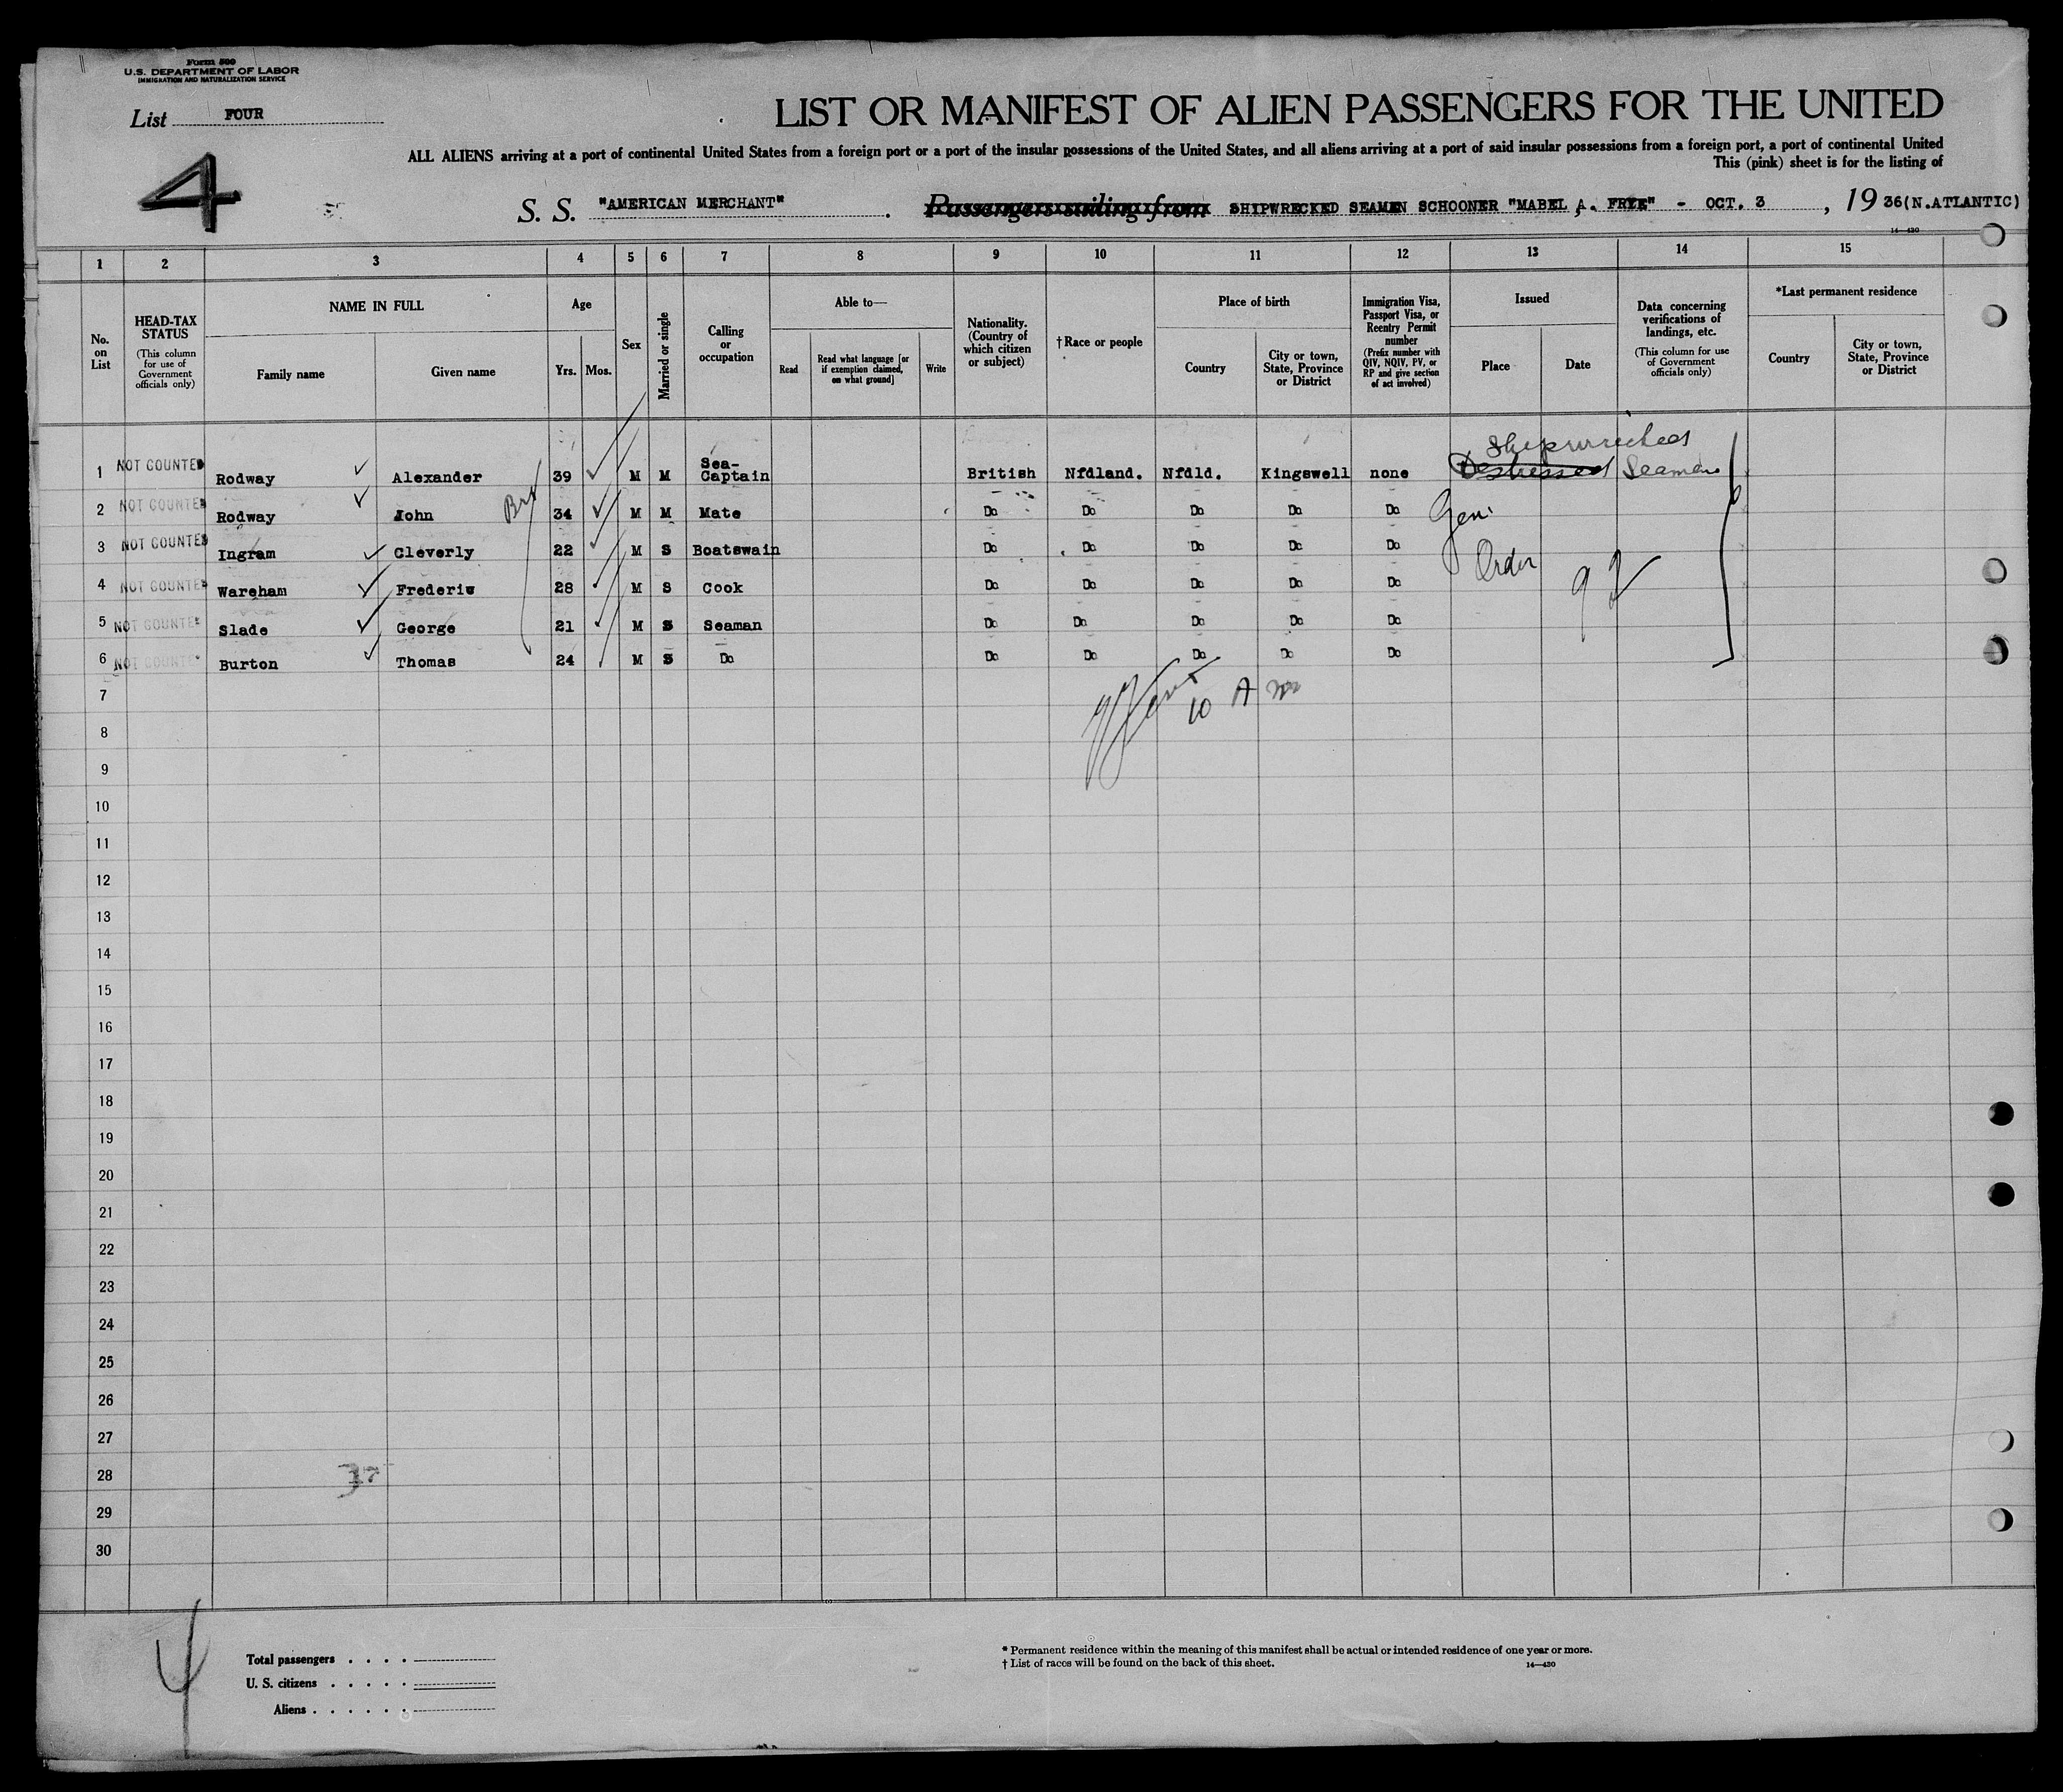 Form 500
U.S. DEPARTMENT OF LABOR
IMMIGRATION AND NATURALIZATION SERVICE
List FOUR
4
LIST OR MANIFEST OF ALIEN PASSENGERS FOR THE UNITED
ALL ALIENS arriving at a port of continental United States from a foreign port or a port of the insular possessions of the United States, and all aliens arriving at a port of said insular possessions from a foreign port, a port of continental United
This (pink) sheet is for the listing of
S. S. "AMERICAN MERCHANT" . Passengers sailing from SHIPWRECKED SEAMEN SCHOONER "MABEL A. FRYE" - OCT. 3 , 19 36(N.ATLANTIC)
14—430
1 2 3 4 5 6 7 8 9 10 11 12 13 14 15
No. on List
HEAD-TAX STATUS
(This column for use of Government officials only)
NAME IN FULL
Family name
Given name
Age
Yrs. Mos.
Sex
Married or single
Calling or occupation
Able to—
Read
Read what language [or if exemption claimed, on what ground]
Write
Nationality. (Country of which citizen or subject)
†Race or people
Place of birth
Country
City or town, State, Province or District
Immigration Visa, Passport Visa, or Reentry Permit number
(Prefix number with QIV, NQIV, PV, or RP and give section of act involved)
Issued
Place
Date
Data concerning verifications of landings, etc.
(This column for use of Government officials only)
*Last permanent residence
Country
City or town, State, Province or District
Shipwrecked
1 NOT COUNTED Rodway Alexander 39 M M Sea-Captain British Nfdland. Nfdld. Kingswell none Distressed Seamen
2 NOT COUNTED Rodway John 34 M M Mate Do Do Do Do Do Gen.
3 NOT COUNTED Ingram Cleverly 22 M S Boatswain Do Do Do Do Do Order
4 NOT COUNTED Wareham Frederiw 28 M S Cook Do Do Do Do Do 92
5 NOT COUNTED Slade George 21 M S Seaman Do Do Do Do Do
6 NOT COUNTED Burton Thomas 24 M S Do Do Do Do Do Do
Br
7
10 A m
8
9
10
11
12
13
14
15
16
17
18
19
20
21
22
23
24
25
26
27
28
29
30
4
Total passengers
U. S. citizens
Aliens
* Permanent residence within the meaning of this manifest shall be actual or intended residence of one year or more.
† List of races will be found on the back of this sheet.
14—430